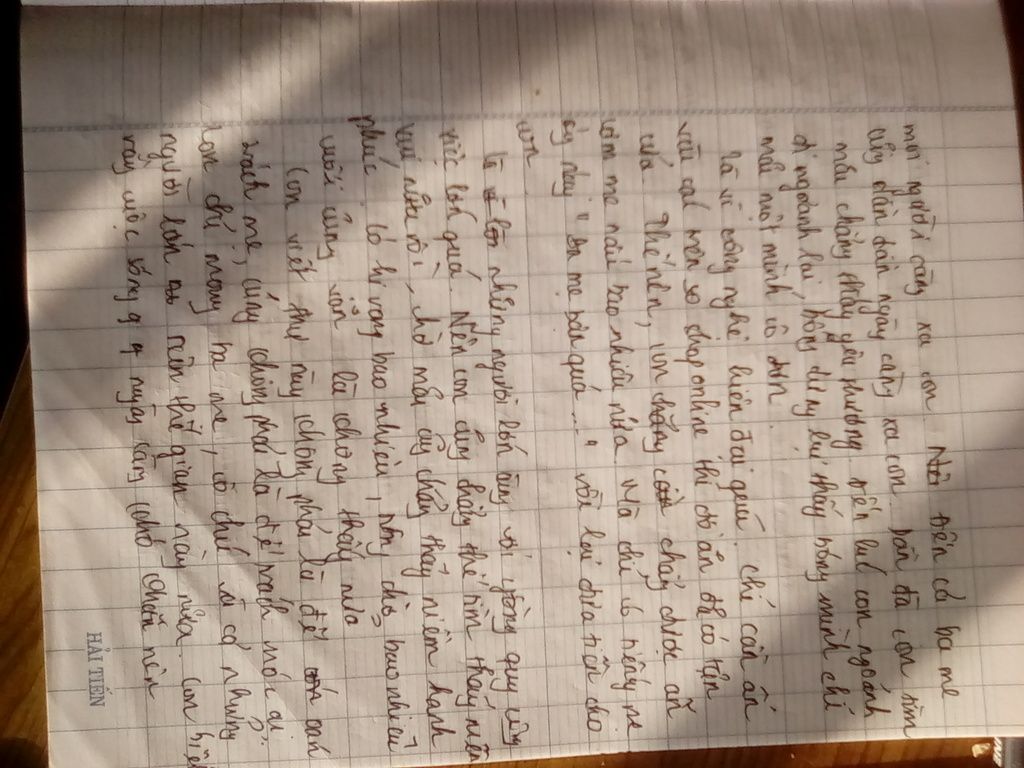 mọi người càng xa con. Nên đến cả ba mẹ
cũng dần dần ngày càng xa con. Dần dà con tìm
mãi chẳng thấy yêu thương. Đến lúc con ngoảnh
đi ngoảnh lại, bỗng dưng lại thấy bóng mình chỉ
mãi một mình cô đơn.
Là vì công nghệ hiện đại quá. Chỉ cần ấn
vài cái trên so đt thì đồ ăn đã có tận
cửa. Thế nên, con chẳng còn thấy được ăn
cơm mẹ nấu bao nhiêu nữa. Mà chỉ là mấy
này "Ba mẹ bận quá..." rồi lại đưa tiền cho
con
Là những người lớn cũng vì guồng quay công
việc lớn quá. Nên con đừng thấy thế tìm thấy niềm
vui nữa rồi, chờ mãi cũng chẳng thấy niềm hạnh
phúc. Có hi vọng bao nhiêu, mong chờ bao nhiêu
cuối cùng vẫn là chẳng thấy nữa.
Con viết thư này chẳng phải là để oán
trách mẹ, cũng chẳng phải là để trách móc ai.
Con chỉ mong ba mẹ, cô chú và cả những
người lớn trên thế gian này nữa. Con biết
rằng cuộc sống ngày càng khó khăn nên
HẢI TIẾN